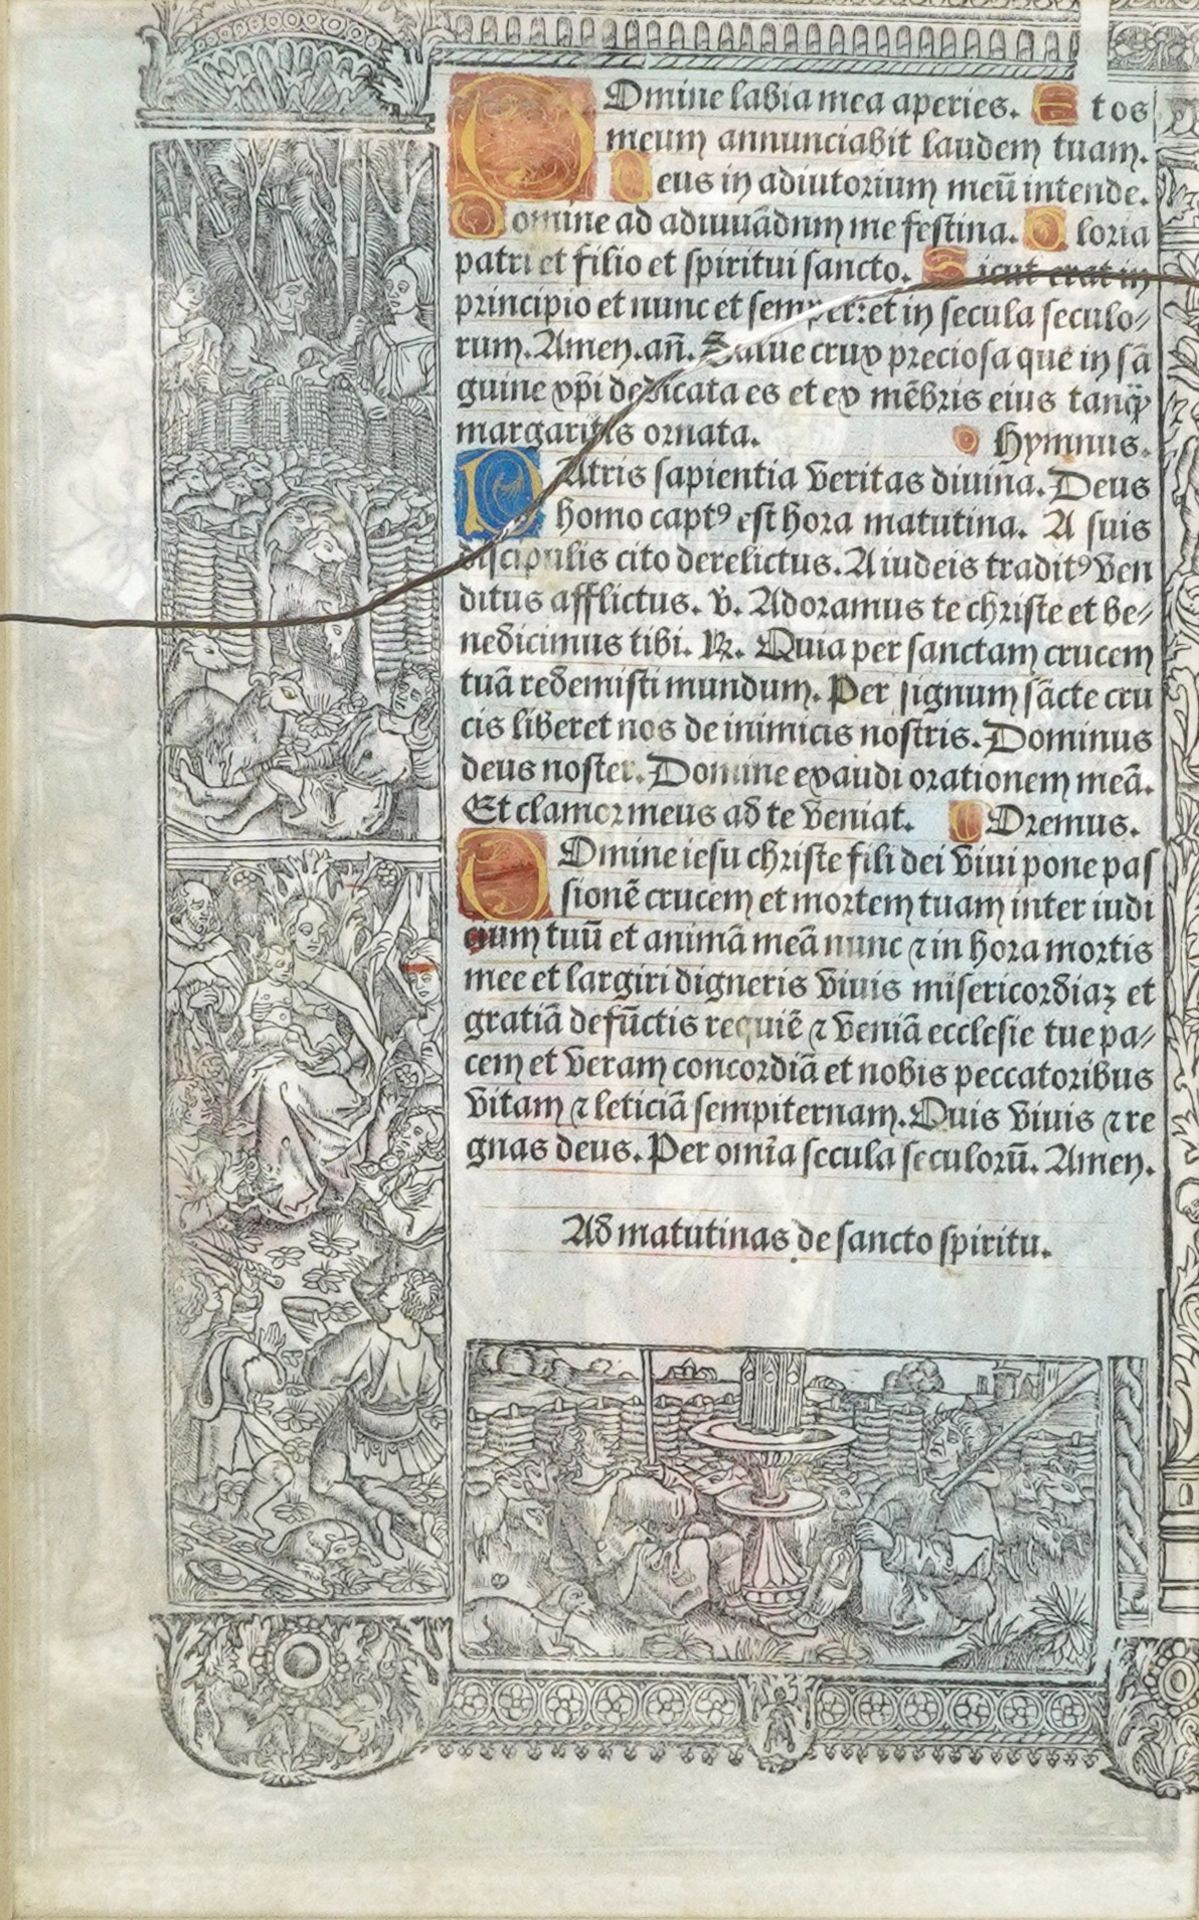 DOmine labia mea aperies. Et os
meum annunciabit laudem tuam.
Deus in adiutorium meū intende.
Domine ad adiuuādum me festina. Gloria
patri et filio et spiritui sancto. Sicut erat in
principio et nunc et semper: et in secula seculo-
rum. Amen. añ. Salue crux preciosa que in sā
guine xp̄i dedicata es et ex mēbris eius tanq̄
margaritis ornata. Hymnus.
PAtris sapientia veritas diuina. Deus
homo captꝰ est hora matutina. A suis
discipulis cito derelictus. A iudeis traditꝰ ven
ditus afflictus. v̄. Adoramus te christe et be-
nedicimus tibi. ℟. Quia per sanctam crucem
tuā redemisti mundum. Per signum sācte cru
cis liberet nos de inimicis nostris. Dominus
deus noster. Domine exaudi orationem meā.
Et clamor meus ad te veniat. Oremus.
DOmine iesu christe fili dei viui pone pas
sionē crucem et mortem tuam inter iudi
cium tuū et animā meā nunc ⁊ in hora mortis
mee et largiri digneris viuis misericordiaꝫ et
gratiā defūctis requiē ⁊ veniā ecclesie tue pa-
cem et veram concordiā et nobis peccatoribus
vitam ⁊ leticiā sempiternam. Quis viuis ⁊ re
gnas deus. Per omīa secula seculorū. Amen.
Ad matutinas de sancto spiritu.